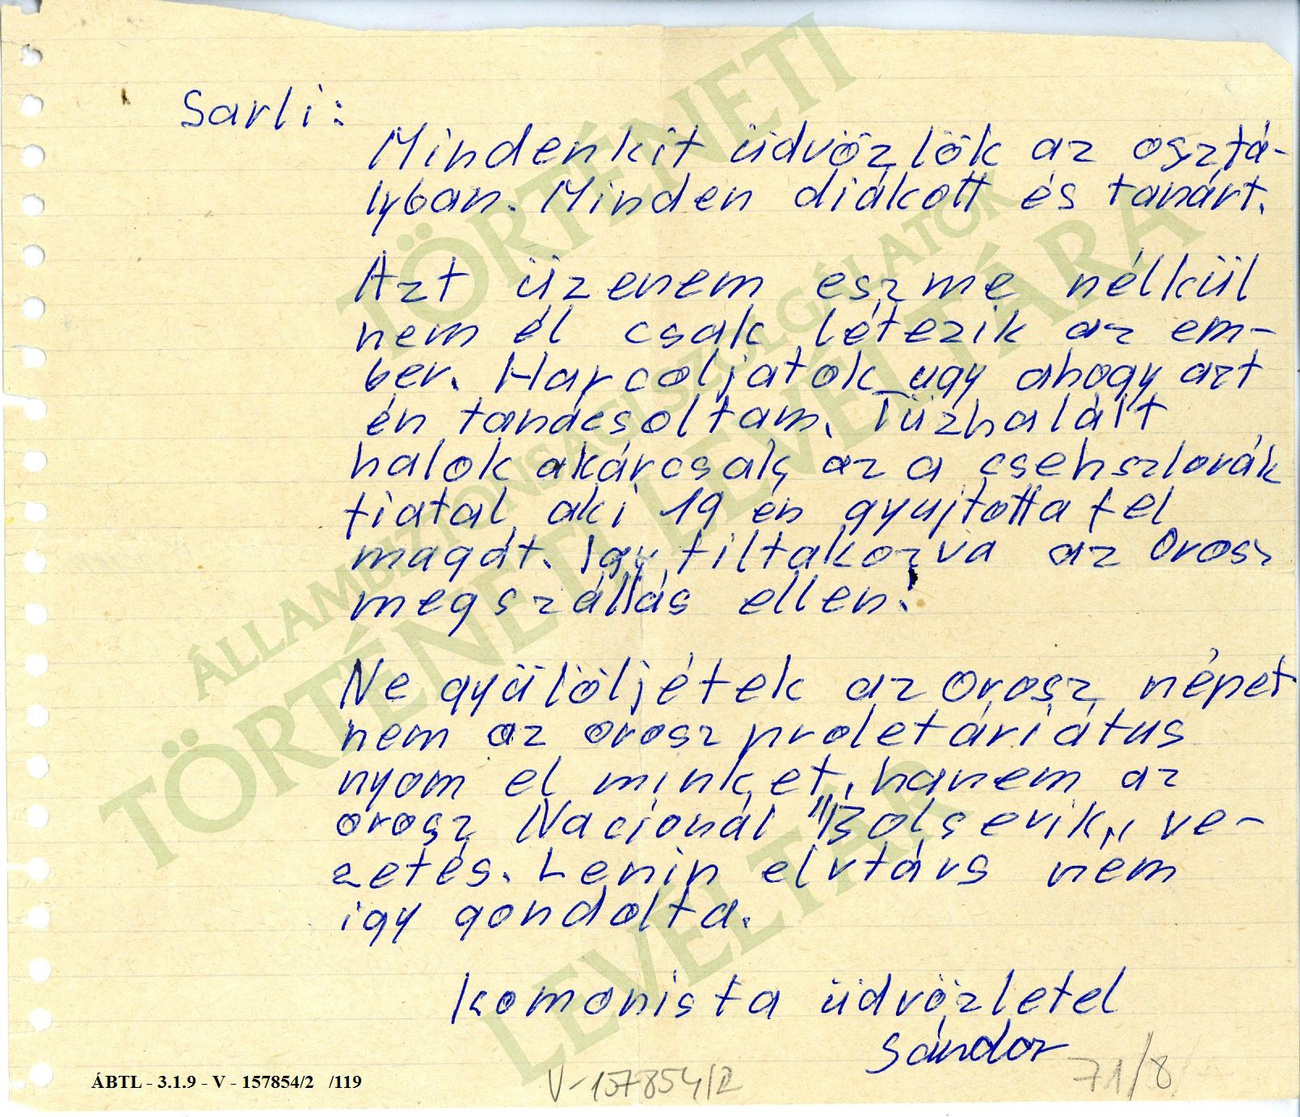 Sarli:
Mindenkit üdvözlök az osztá-
lyban. Minden diákott és tanárt.
Azt üzenem eszme nélkül
nem él csak létezik az em-
ber. Harcoljatok ugy ahogy azt
én tanácsoltam. Tűzhalált
halok akárcsak az a csehszlovák
fiatal aki 19 én gyujtotta fel
magát. Igy tiltakozva az orosz
megszállás ellen!
Ne gyülöljétek az orosz népet
nem az orosz proletáriátus
nyom el minket, hanem az
orosz Nacionál "Bolsevik„ ve-
zetés. Lenin elvtárs nem
igy gondolta.
Komonista üdvözletel
Sándor
ÁBTL - 3.1.9 - V - 157854/2 /119
V-157854/2
71/8
TÖRTÉNETI
ÁLLAMBIZTONSÁGI SZOLGÁLATOK
TÖRTÉNETI LEVÉLTÁRA
LEVÉLTÁR